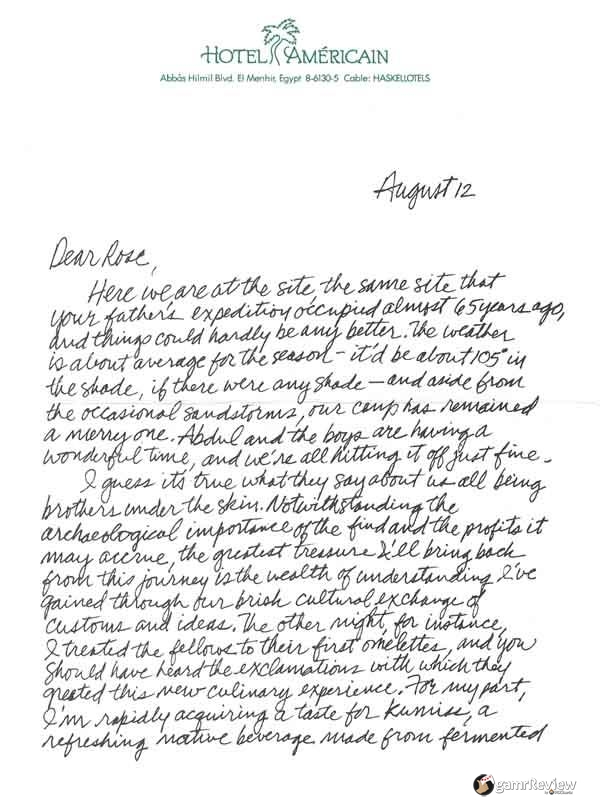 HOTEL AMÉRICAIN
Abbás Hilmil Blvd. El Menhir, Egypt 8-6130-5 Cable: HASKELLOTELS
August 12
Dear Rose,
Here we are at the site, the same site that
your father's expedition occupied almost 65 years ago,
and things could hardly be any better. The weather
is about average for the season - it'd be about 105° in
the shade, if there were any shade - and aside from
the occasional sandstorms, our camp has remained
a merry one. Abdul and the boys are having a
wonderful time, and we're all hitting it off just fine.
I guess it's true what they say about us all being
brothers under the skin. Notwithstanding the
archaeological importance of the find and the profits it
may accrue, the greatest treasure I'll bring back
from this journey is the wealth of understanding I've
gained through our brisk cultural exchange of
customs and ideas. The other night, for instance,
I treated the fellows to their first omelettes, and you
should have heard the exclamations with which they
greeted this new culinary experience. For my part,
I'm rapidly acquiring a taste for Kumiss, a
refreshing native beverage made from fermented
gamrReview